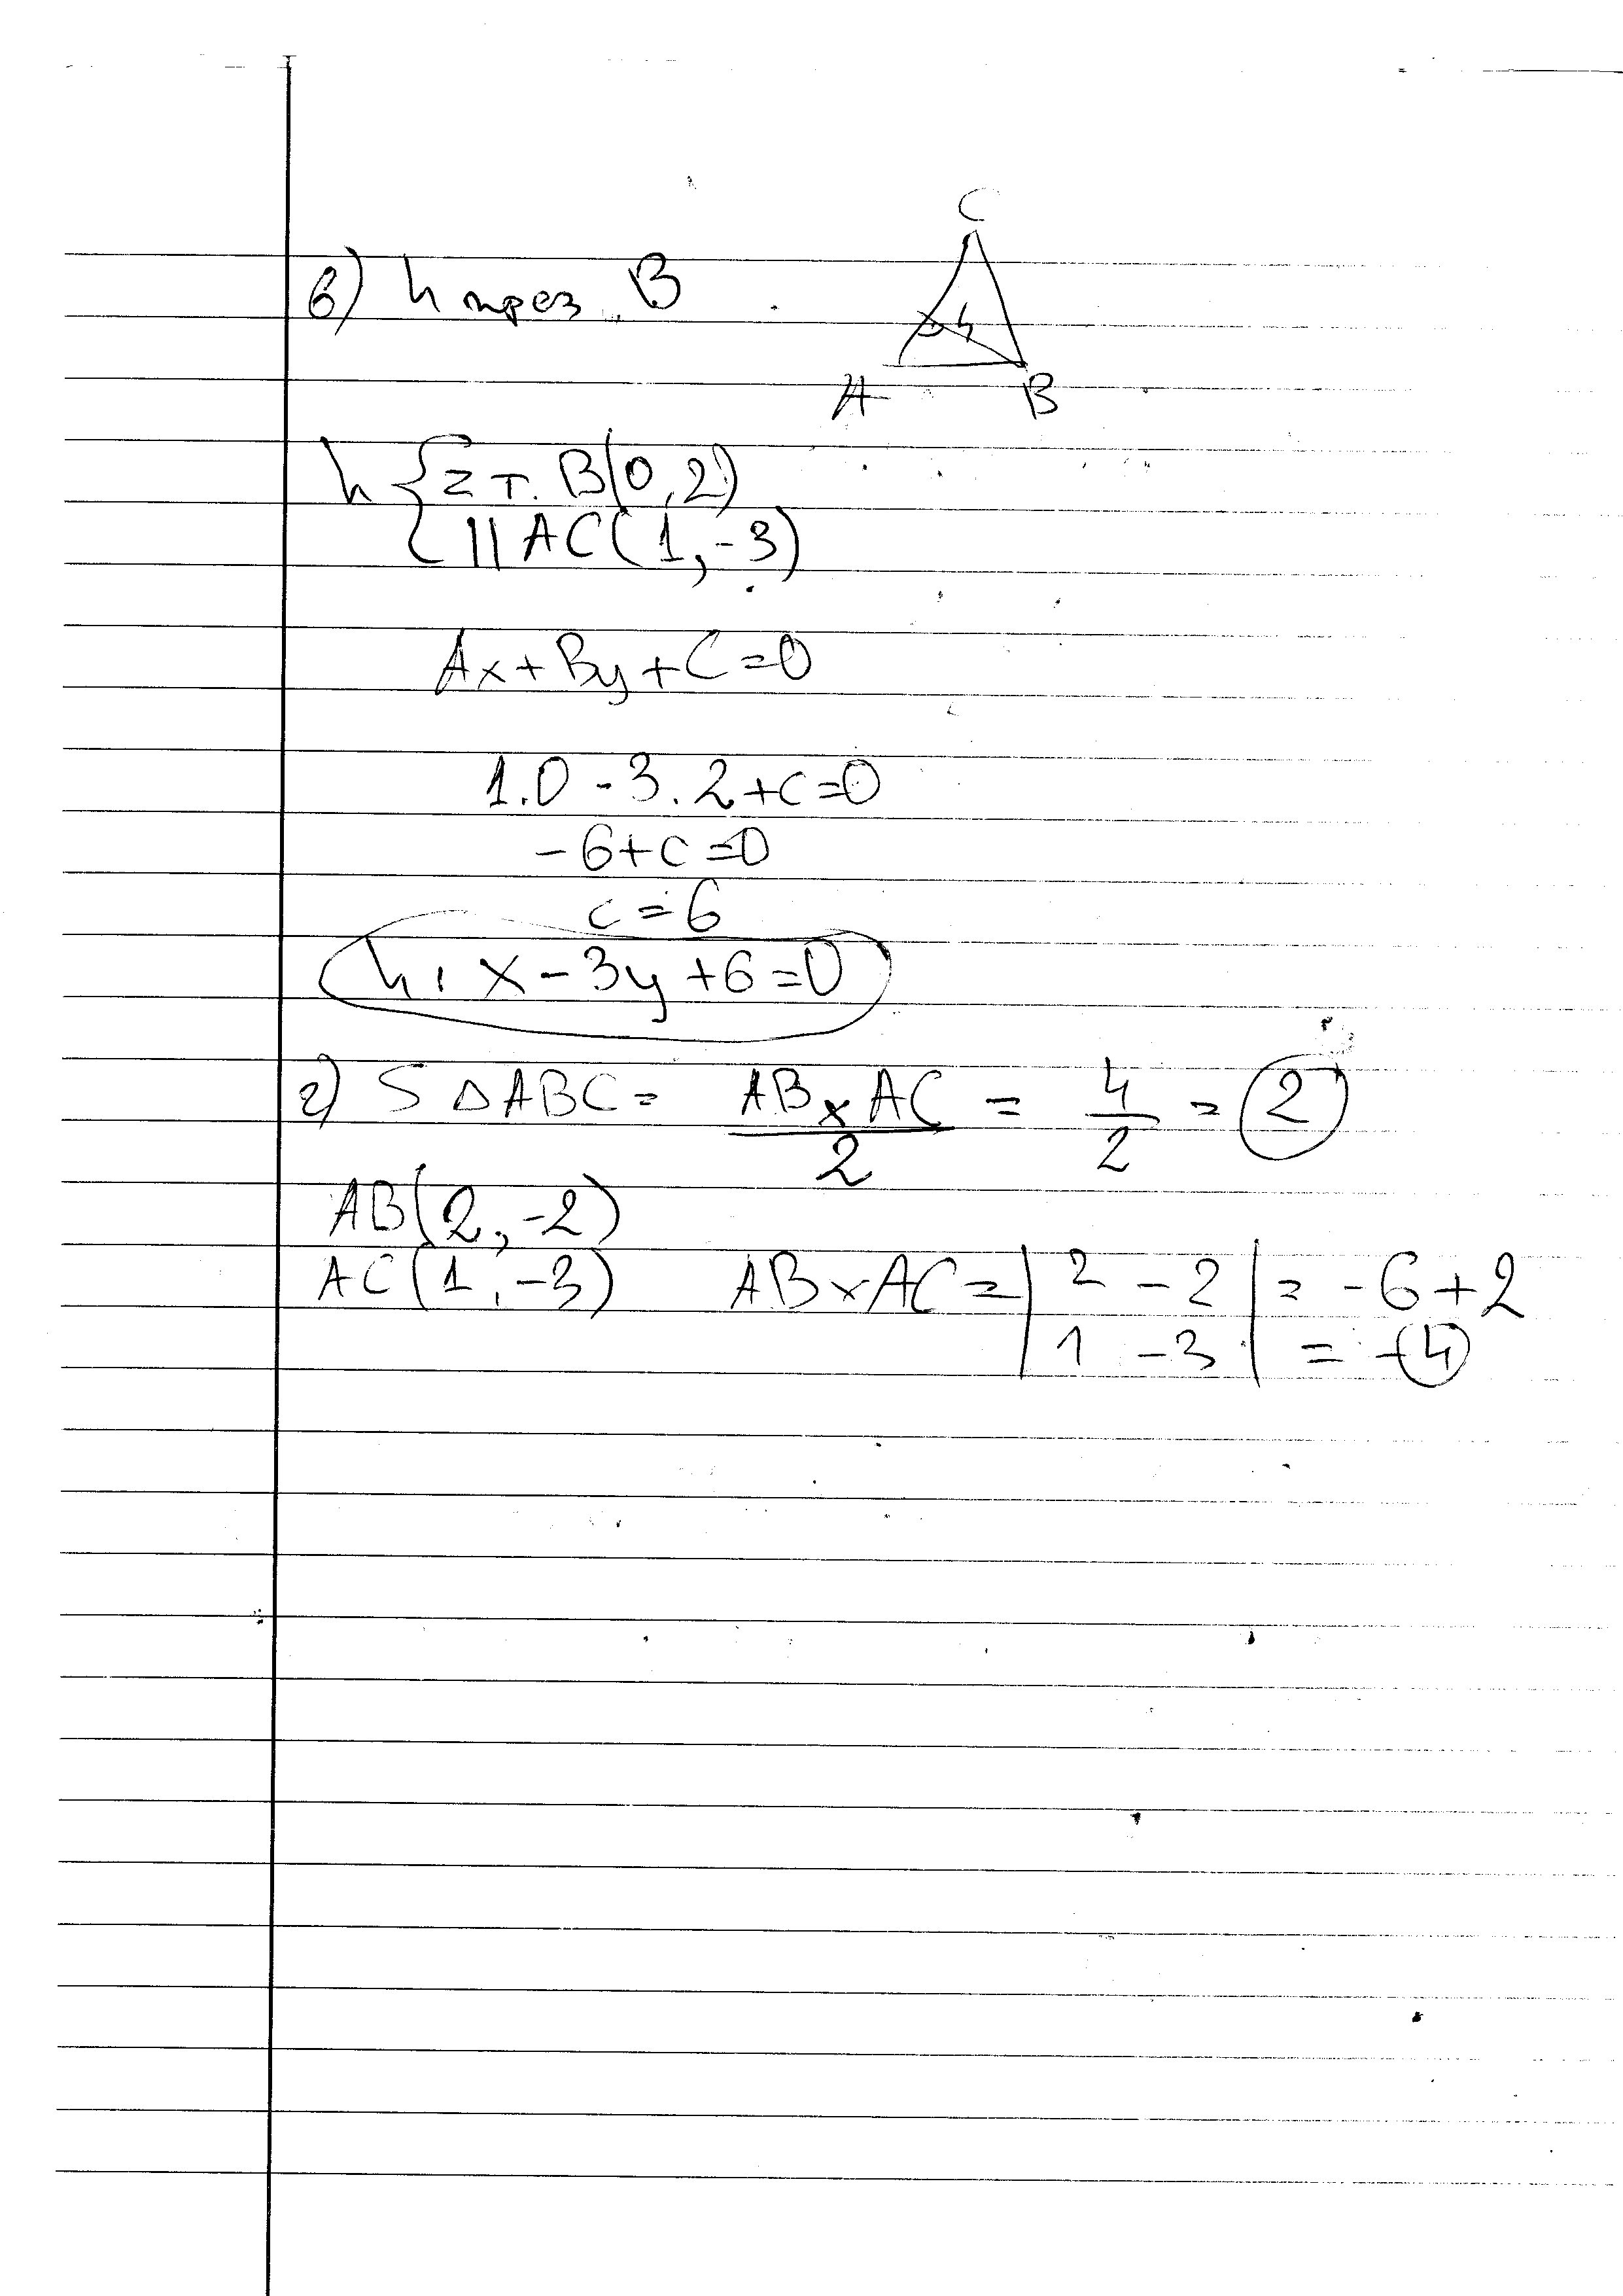 C
в) h през B
h
A B
h { z т. B(0,2)
|| AC(1,-3)
Ax+By+C=0
1.0-3.2+c=0
-6+c=0
c=6
h: x-3y+6=0
г) S △ABC = AB x AC / 2 = 4/2 = 2
AB(2,-2)
AC(1,-3) AB x AC = | 2 -2 | = -6+2
| 1 -3 | = -4